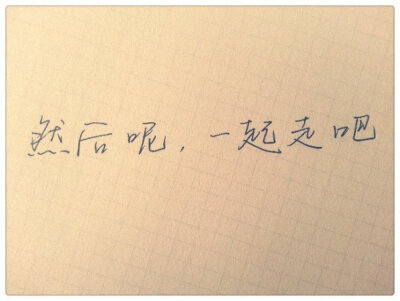 然后呢，一起走吧